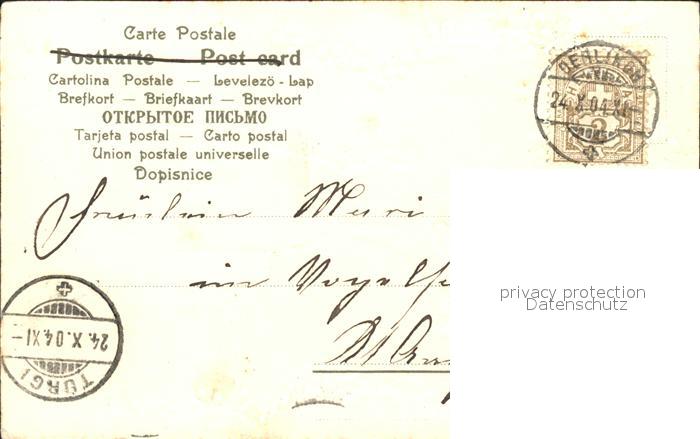 Carte Postale
Postkarte Post card
Cartolina Postale — Levelezö - Lap
Brefkort — Briefkaart — Brevkort
ОТКРЫТОЕ ПИСЬМО
Tarjeta postal — Carto postal
Union postale universelle
Dopisnice
OERLIKON
24.X.04.XI
2
Fräulein Meri
im Vogels
privacy protection
Datenschutz
24.X.04.XI-
TURGI